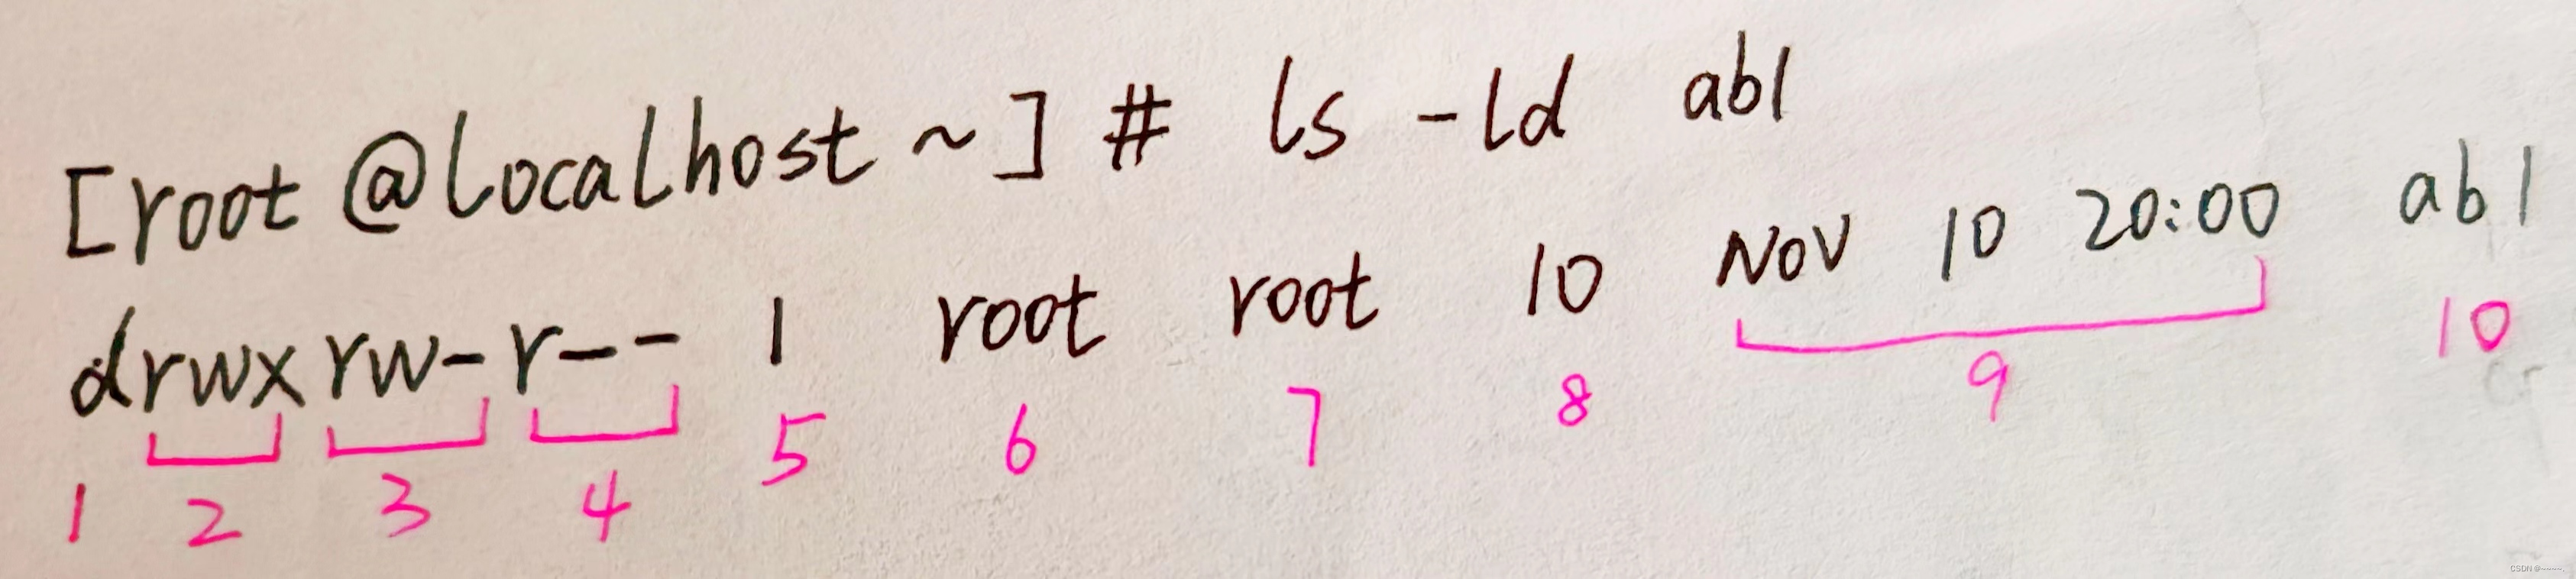 [root@localhost ~] # ls -ld ab1
drwxrw-r-- 1 root root 10 Nov 10 20:00 ab1
1 2 3 4 5 6 7 8 9 10